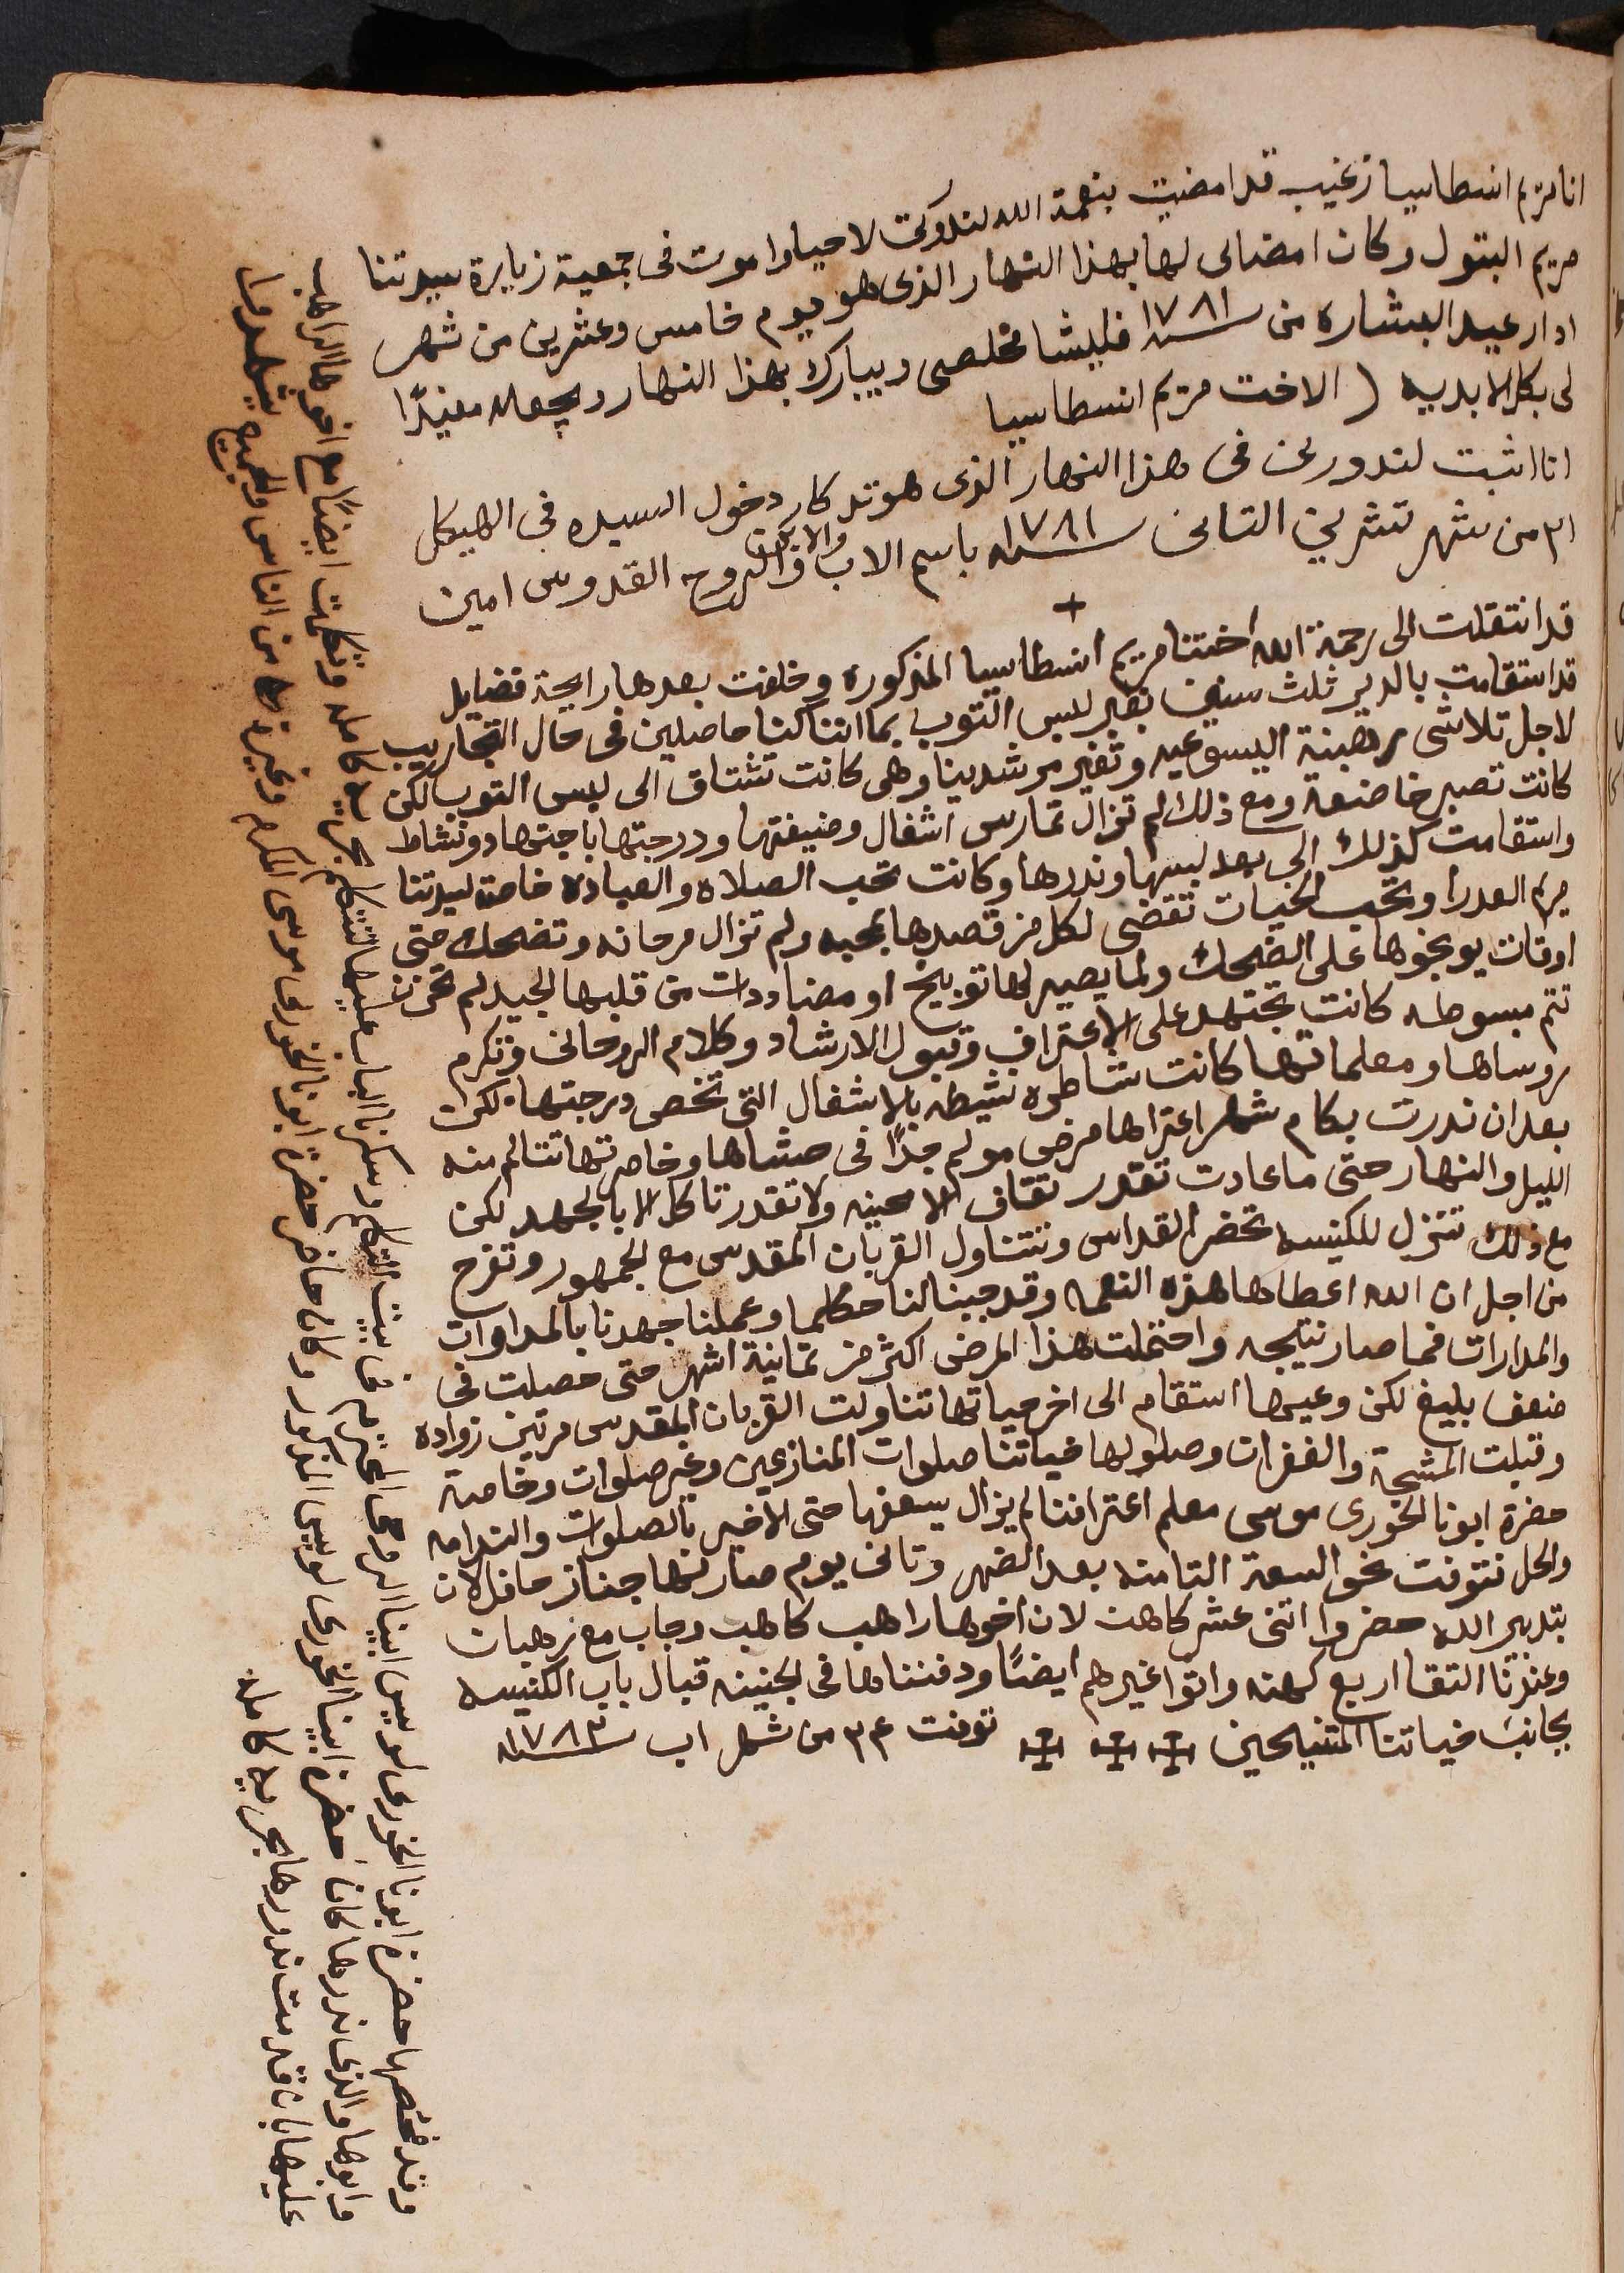 انا مريم انسطاسيا زغيب قد امضيت بنعمة الله لندوكن لاحيا واموت فى جمعية زيارة سيدتنا
مريم البتول وكان امضاى لها بهذا النهار الذى هو يوم خامس وعشرين من شهر
ادار عيد البشاره من سنة ١٧٨١ فليشا مخلصى ويبارك بهذا النهار ويجعله مفيدًا
لى بكل الابديه ( الاخت مريم انسطاسيا
انا اثبت لندورى فى هذا النهار الذى هو تدكار دخول السيده فى الهيكل
٢١ من شهر تشرين التانى سنة ١٧٨١ باسم الاب والابن والروح القدوس امين
+
قد انتقلت الى رحمة الله اختنا مريم انسطاسيا المذكوره وخلفت بعدها رايحة فضايل
قد استقامت بالدير ثلث سنين بغير لبس التوب بما اننا كنا حاصلين فى حال التجاريب
لاجل تلاشى رهبنة اليسوعيه وتغير مرشدينا وهى كانت تشتاق الى لبس التوب لكن
كانت تصبر خاضعة ومع ذلك لم تزال تمارس اشغال وضيفتها ودرجتها باجتهاد ونشاط
واستقامت كذلك الى بعد لبسها وندرها وكانت تحب الصلاه والعباده خاصة لسيدتنا
مريم العدرا وتحب الخيات تقضى لكل من قصدها بمحبه ولم تزال فرحانه وتضحك حتى
اوقات يوبخوها على الضحك ولما يصير لها توبيخ او مضاددات من قلبها الجيد لم تحزن
تتم مبسوطه كانت تجتهد على الاعتراف وقبول الارشاد وكلام الروحانى وتكرم
روساها ومعلماتها كانت شاطره نشيطه بالاشغال التى تخص درجتها لكن
بعد ان ندرت بكام شهر اعتراها مرض مولم جدًا فى حشاها وخاصرتها تتالم منه
الليل والنهار حتى ما عادت تقدر تقاف الا محنيه ولا تقدر تاكل الا بالجهد لكن
مع ذلك تنزل للكنيسه تحضر القداس وتتناول القربان المقدس مع الجمهور وتفرح
من اجل ان الله اعطاها هذه النعمه وقد جبنا لها حكما وعملنا جهدنا بالمداوات
والمدارات فما صار نتيجه واحتملت هذا المرض اكثر من تمانية اشهر حتى حصلت فى
ضعف بليغ لكن وعيها استقام الى اخر حياتها تناولت القربان المقدس مرتين زواده
وقبلت المشحة والغفرات وصلولها خياتنا صلوات المنازعين وغير صلوات وخاصة
حضرة ابونا الخورى موسى معلم اعترافنا لم يزال يسعفها حتى الاخير بالصلوات والندامه
والحل فتوفت نحو السعة التامنه بعد الضهر وتانى يوم صار لها جناز حافل لان
بتدبير الله حضروا اتنى عشر كاهن لان اخوها راهب كاهن وجاب مع رهبان
وعندنا التقا اربع كهنه واتوا غيرهم ايضًا ودفنناها فى الجنينه قبال باب الكنيسه
بجانب خياتنا المتنيحين ✢ ✢ ✢ توفت ٢٤ من شهر اب سنة ١٧٨٣
وقد فحصها حضرة ابونا الخورى
وابوها والذى ندرها كان حضرة ابينا الخورى المذكور وكان حاضر حضرة ابونا الخورى موسى المكرم وغيرهما من الناس والجميع
عليها بان قدمت ندورها بحريه كامله